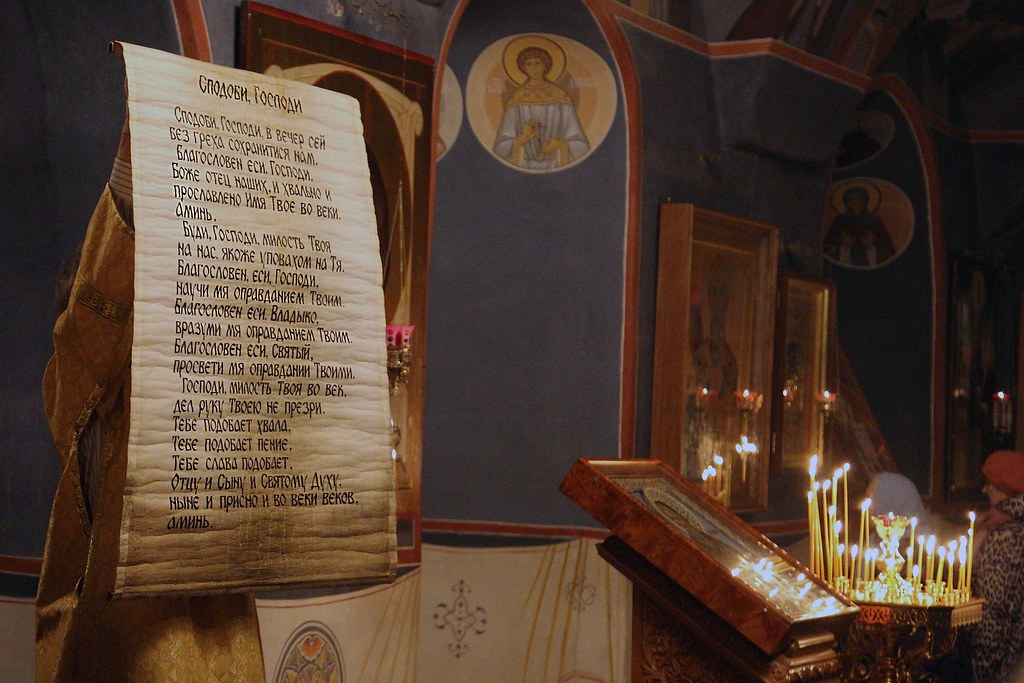 Сподоби, Господи
Сподоби, Господи, в вечер сей
без греха сохранитися нам.
Благословен еси, Господи,
Боже отец наших, и хвально и
прославлено имя Твое во веки.
Аминь.
Буди, Господи, милость Твоя
на нас, якоже уповахом на Тя.
Благословен, еси, Господи,
научи мя оправданием Твоим.
Благословен еси, Владыко,
вразуми мя оправданием Твоим.
Благословен еси, Святый,
просвети мя оправдании Твоими.
Господи, милость Твоя во век,
дел руку Твоею не презри.
Тебе подобает хвала,
Тебе подобает пение,
Тебе слава подобает,
Отцу и Сыну и Святому Духу,
ныне и присно и во веки веков.
Аминь.